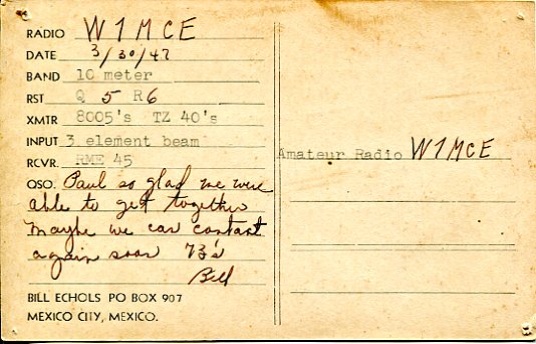 RADIO W1MCE
DATE 3/30/47
BAND 10 meter
RST Q 5 R 6
XMTR 8005's TZ 40's
INPUT 3 element beam
RCVR. RME 45
QSO. Paul so glad we were
able to get together
maybe we can contact
again soon 73's
Bill
BILL ECHOLS PO BOX 907
MEXICO CITY, MEXICO.
Amateur Radio W1MCE